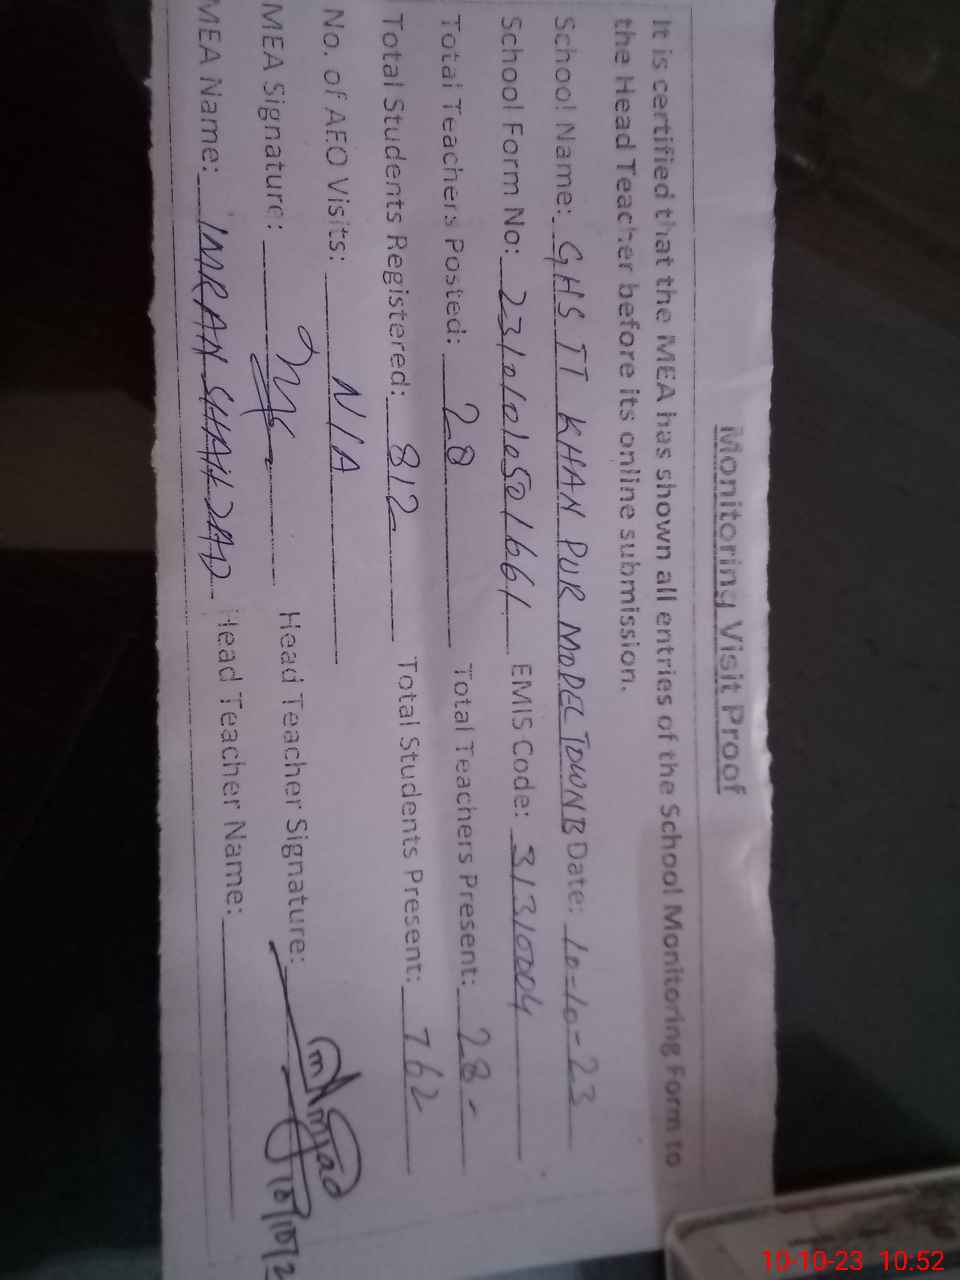 Monitoring Visit Proof
It is certified that the MEA has shown all entries of the School Monitoring Form to
the Head Teacher before its online submission.
School Name: GHS TT KHAN PUR MODEL TOWN B Date: 10-10-23
School Form No: 23101010501661 EMIS Code: 31310004
Total Teachers Posted: 28 Total Teachers Present: 28-
Total Students Registered: 812 Total Students Present: 762
No. of AEO Visits: N/A
MEA Signature: Head Teacher Signature:
MEA Name: IMRAN SHAHZAD Head Teacher Name:
10-10-23 10:52